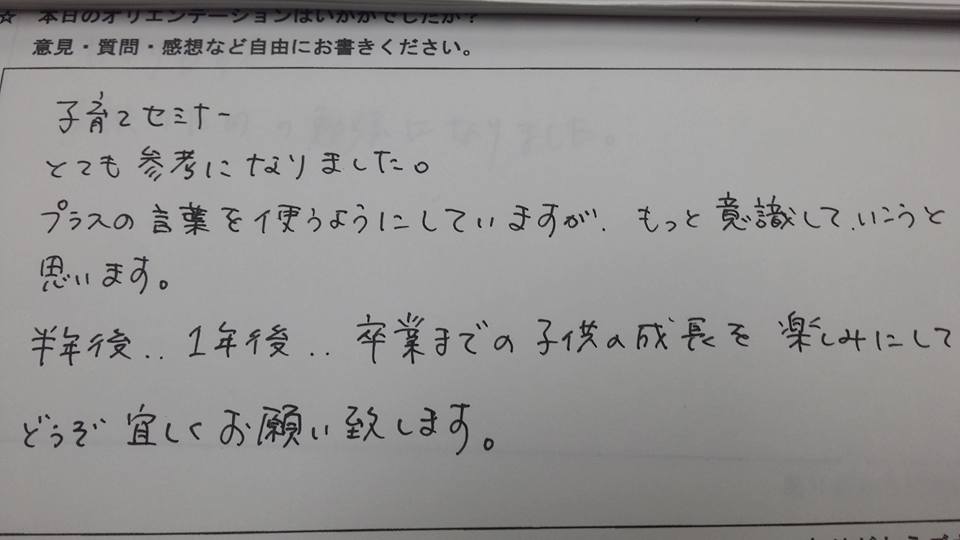 ☆ 本日のオリエンテーションはいかがでしたか？
意見・質問・感想など自由にお書きください。
子育てセミナー
とても参考になりました。
プラスの言葉を使うようにしていますが、もっと意識して、いこうと
思います。
半年後‥1年後‥卒業までの子供の成長を楽しみにして
どうぞ宜しくお願い致します。